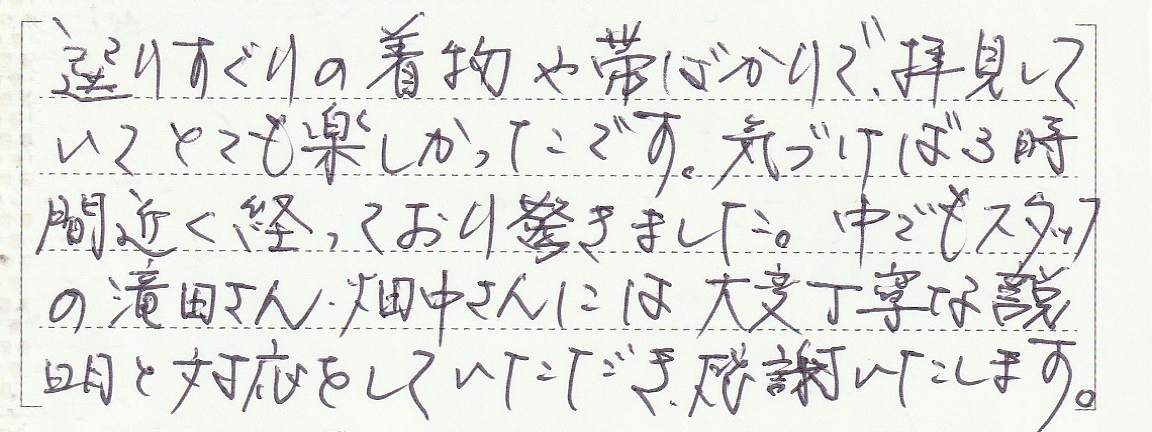 選りすぐりの着物や帯ばかりで、拝見して
いてとても楽しかったです。気づけば3時
間近く経っており驚きました。中でもスタッフ
の滝田さん、畑中さんには大変丁寧な説
明と対応をしていただき、感謝いたします。